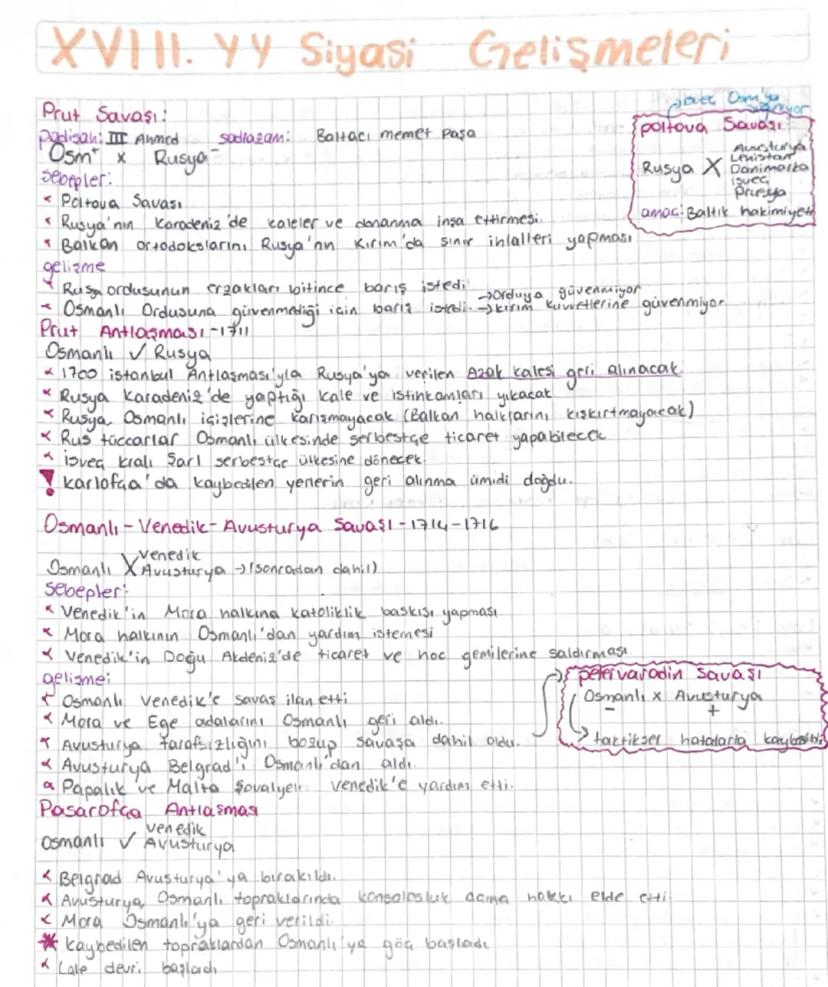 XVIII. YY Siyasi Gelişmeleri
Prut Savaşı:
padişah: III Ahmed sadrazam: Baltacı memet Paşa
Osm+ x Rusya-
Sebepler:
Poltova Savaşı
Rusya'nın Karadeniz'de kaleler ve donanma inşa ettirmesi.
Balkan ortodokslarını Rusya'nın Kırım'da sınır inlalleri yapması
İsveç Osm'ya sığınıyor
poltova Savaşı:
Rusya X Avusturya
Lehistan
Danimarka
isveç
Prusya
amaç: Baltık hakimiyeti
gelişme
Rusya ordusunun erzakları bitince barış istedi
Osmanlı Ordusuna güvenmediği için barış istedi. →Orduya güvenmiyor
→kırım kuvvetlerine güvenmiyor
Prut Antlaşması-1711
Osmanlı ✓ Rusya
1700 istanbul Antlaşması'yla Rusya'ya verilen Azak kalesi geri alınacak.
Rusya Karadeniz'de yaptığı kale ve istihkamları yıkacak
Rusya, Osmanlı içişlerine karışmayacak (Balkan halklarını kışkırtmayacak)
Rus tüccarlar Osmanlı ülkesinde serbestçe ticaret yapabilecek
isveç kralı Şarl serbestçe ülkesine dönecek.
! Karlofça'da kaybedilen yerlerin geri alınma ümidi doğdu.
Osmanlı-Venedik-Avusturya Savaşı-1714-1716
Osmanlı X Venedik
Avusturya →(sonradan dahil)
Sebepler:
Venedik'in Mora halkına katoliklik baskısı yapması
Mora halkının Osmanlı'dan yardım istemesi
Venedik'in Doğu Akdeniz'de ticaret ve hac gemilerine saldırması
gelişme:
Osmanlı Venedik'e savaş ilan etti
Mora ve Ege adalarını Osmanlı geri aldı.
Avusturya tarafsızlığını bozup savaşa dahil oldu.
Avusturya Belgrad'ı Osmanlı'dan aldı.
Papalık ve Malta Şovalyeri Venedik'e yardım etti.
petervaradin Savaşı
Osmanlı x Avusturya
- +
→ taktiksel hatalarla kaybedildi
Pasarofça Antlaşması
Osmanlı ✓ Venedik
Avusturya
Belgrad Avusturya'ya bırakıldı.
Avusturya, Osmanlı topraklarında konsolosluk açma hakkı elde etti
Mora Osmanlı'ya geri verildi.
* kaybedilen topraklardan Osmanlı'ya göç başladı
Lale devri başladı